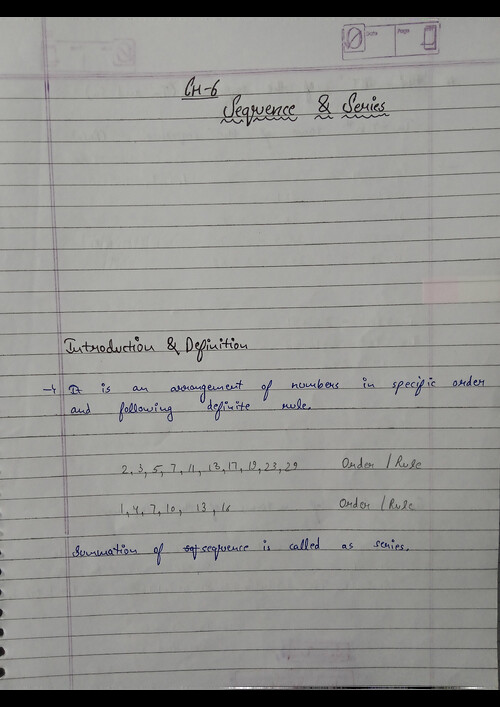 Date
Page
CH-6
Sequence & Series
Introduction & Definition
→ It is an arrangement of numbers in specific order
and following definite rule.
2, 3, 5, 7, 11, 13, 17, 19, 23, 29 Order / Rule
1, 4, 7, 10, 13, 16 Order / Rule
Summation of sequence is called as series.